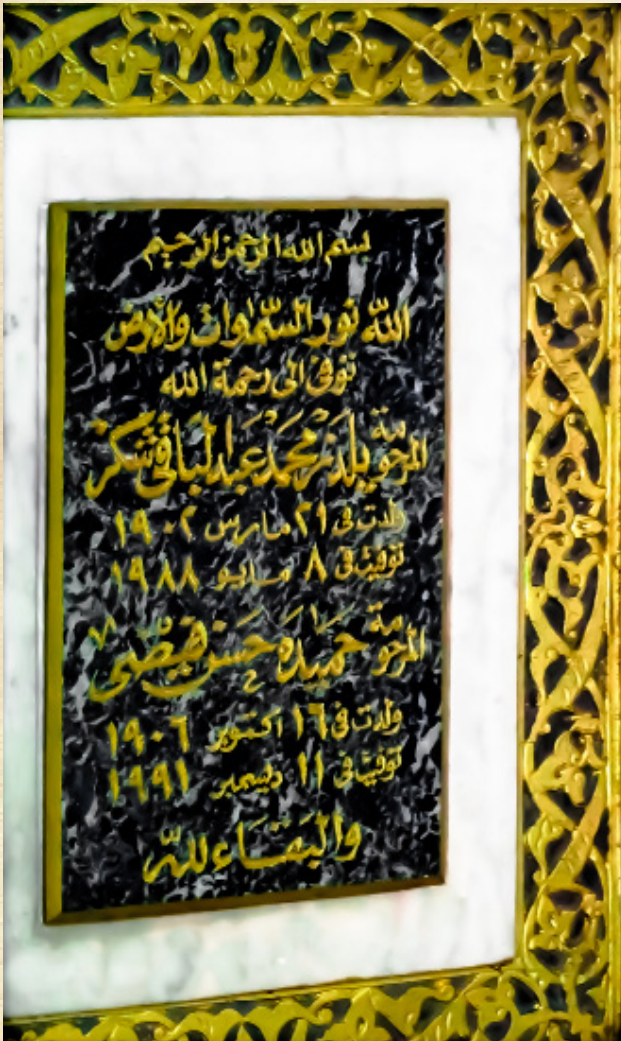 بسم الله الرحمن الرحيم
الله نور السموات والأرض
توفى الى رحمة الله
المرحومة يلدز محمد عبد الباقى شكر
ولدت فى ٢١ مارس ١٩٠٢
توفيت فى ٨ مايو ١٩٨٨
المرحومة حميده حسن فيضى
ولدت فى ١٦ اكتوبر ١٩٠٦
توفيت فى ١١ ديسمبر ١٩٩١
والبقاء لله